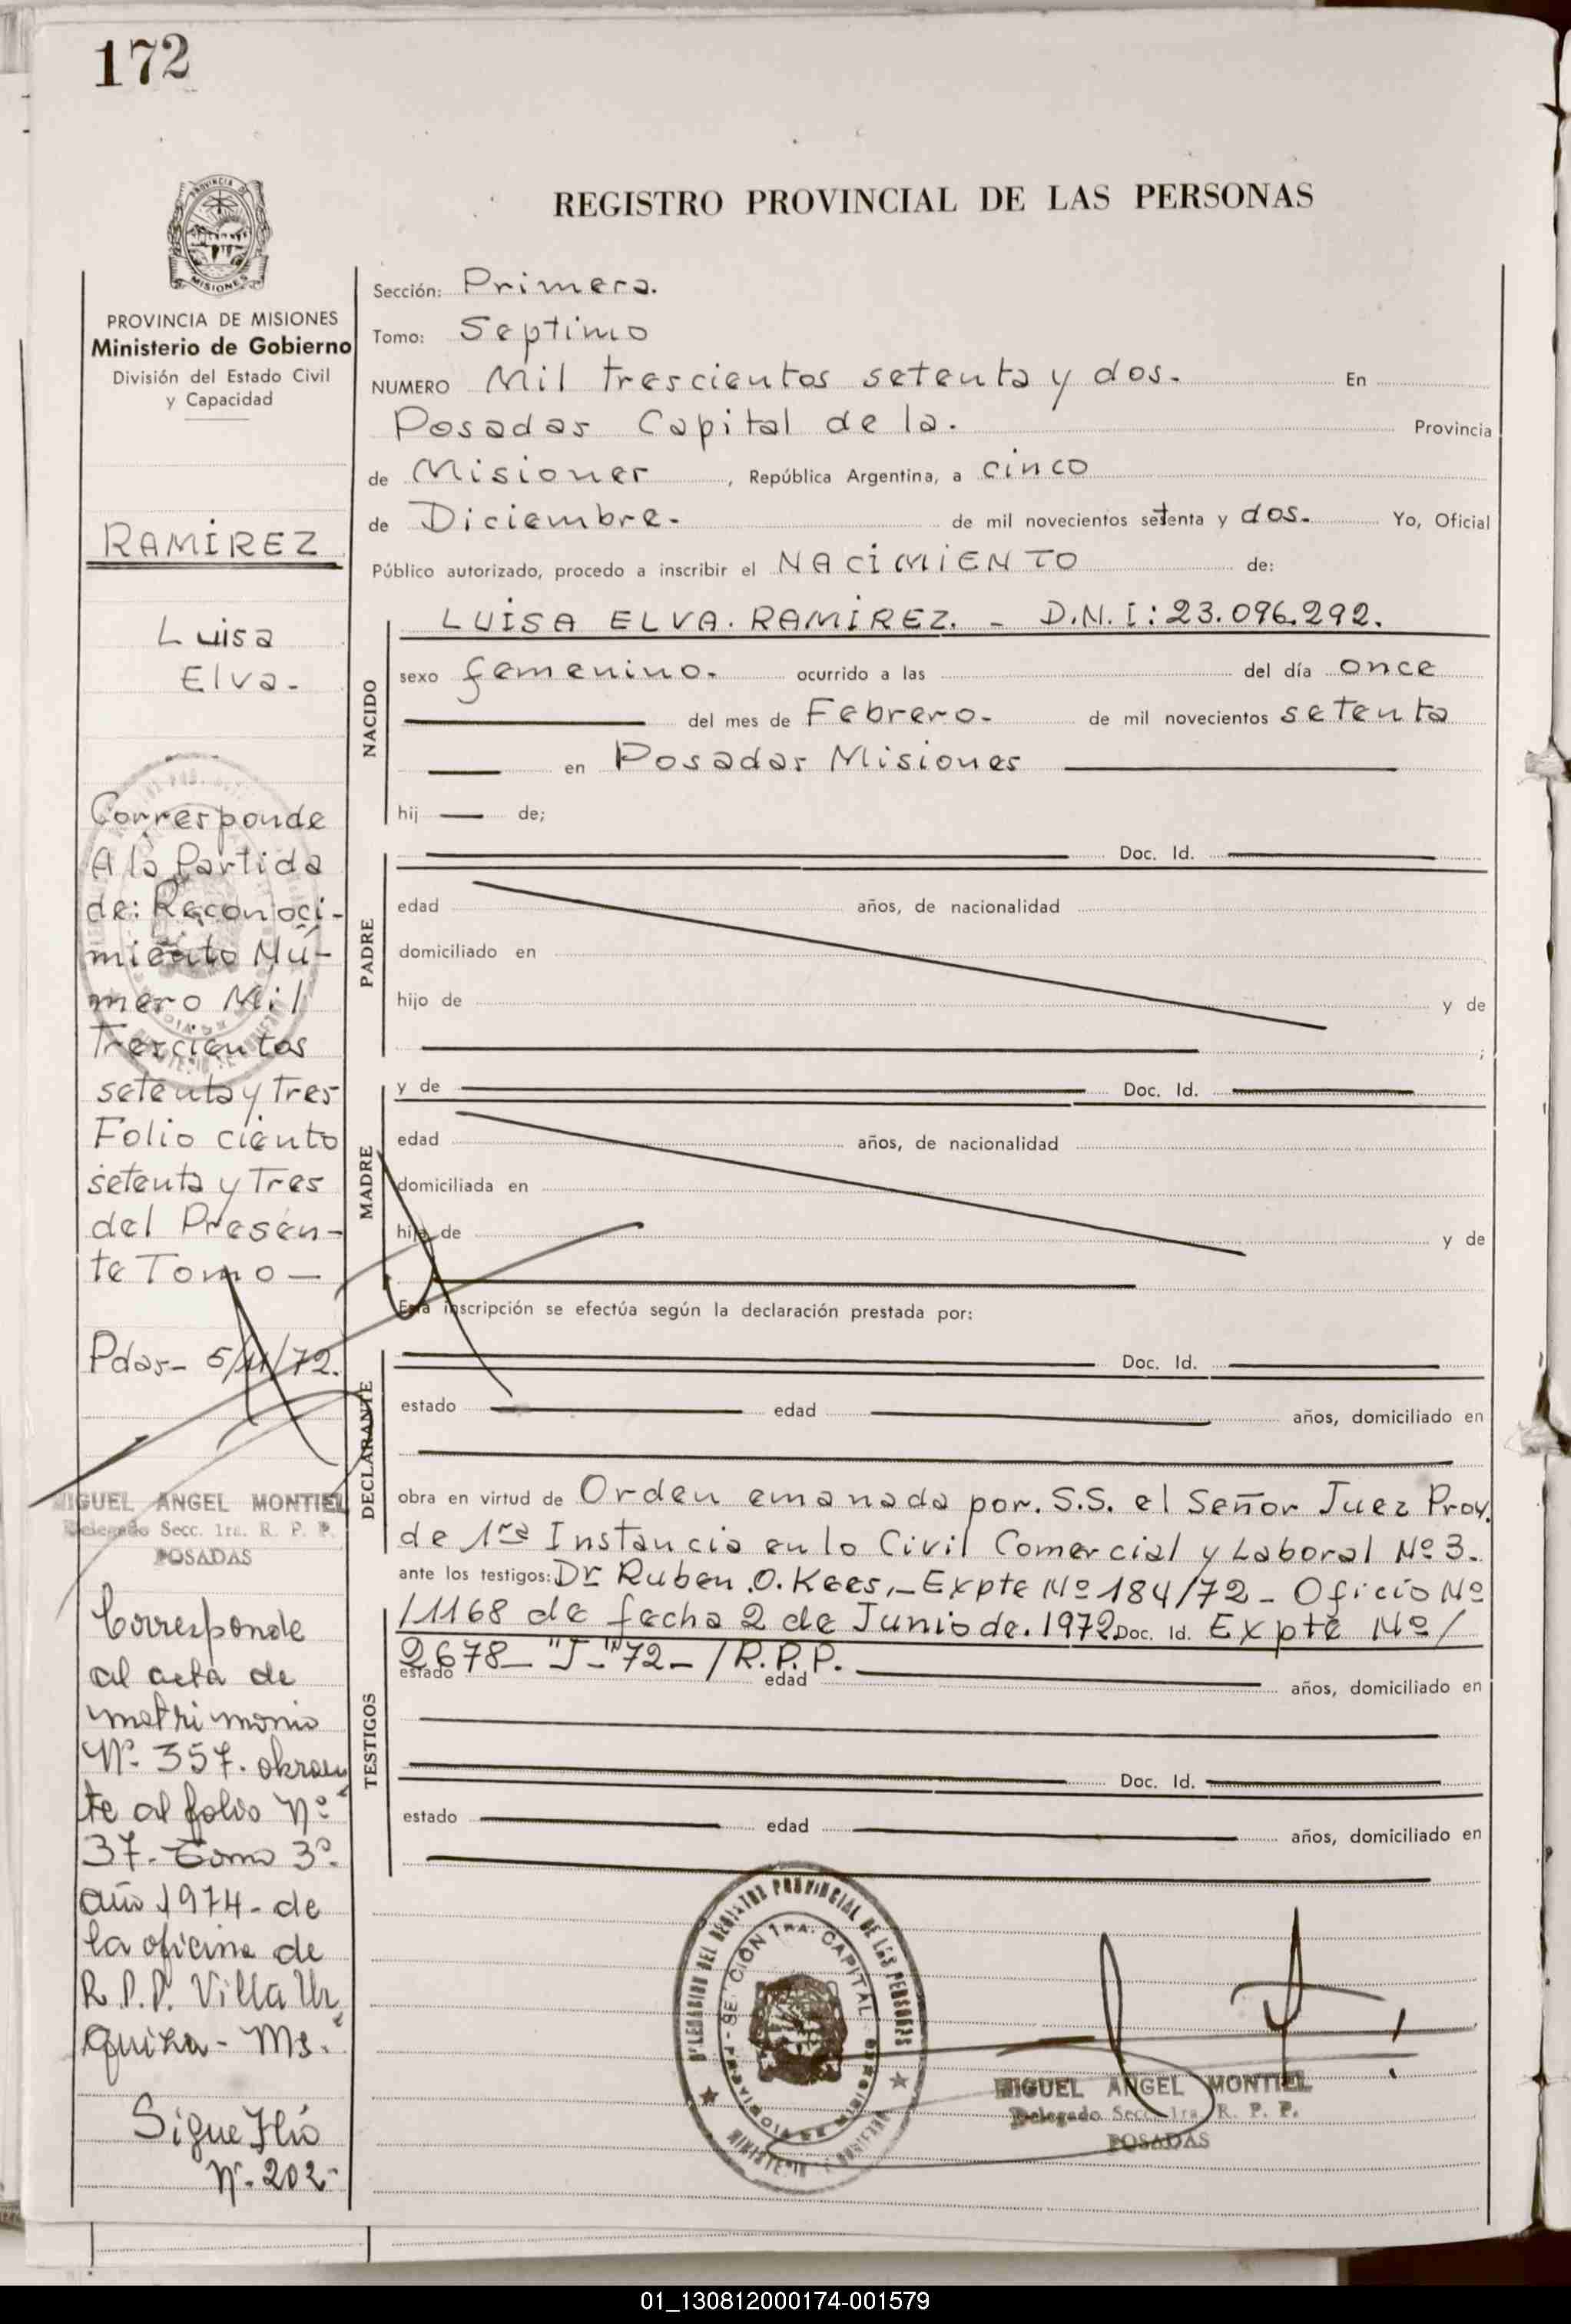 172
REGISTRO PROVINCIAL DE LAS PERSONAS
PROVINCIA DE
MISIONES
PROVINCIA DE MISIONES
Ministerio de Gobierno
División del Estado Civil
y Capacidad
RAMIREZ
Luisa
Elva.-
Corresponde
A la Partida
de: Reconoci-
miento Nú-
mero Mil
Trescientos
setenta y Tres
Folio ciento
setenta y Tres
del Presen-
te Tomo —
Pdas- 5/11/72.
MIGUEL ANGEL MONTIEL
Delegado Secc. 1ra. R. P. P.
POSADAS
Corresponde
al acta de
matrimonio
Nº 357. obran
te al folio Nº
37- Tomo 3º.
año 1974- de
la oficina de
R.P.P. Villa Ur
quiza- Ms.
Sigue Flio
Nº 202-
Sección: Primera.
Tomo: Septimo
NUMERO Mil trescientos setenta y dos. En
Posadas Capital de la. Provincia
de Misiones, República Argentina, a cinco
de Diciembre. de mil novecientos setenta y dos. Yo, Oficial
Público autorizado, procedo a inscribir el NACIMIENTO de:
NACIDO
LUISA ELVA. RAMIREZ. - D.N.I: 23.096.292.
sexo femenino. ocurrido a las del día once
del mes de Febrero. de mil novecientos setenta
en Posadas Misiones
hij de;
PADRE
Doc. Id.
edad años, de nacionalidad
domiciliado en
hijo de y de
;
MADRE
y de Doc. Id.
edad años, de nacionalidad
domiciliada en
hija de y de
Esta inscripción se efectúa según la declaración prestada por:
DECLARANTE
Doc. Id.
estado edad años, domiciliado en
obra en virtud de Orden emanada por. S.S. el Señor Juez Prov.
de 1ra Instancia en lo Civil Comercial y Laboral Nº 3.
ante los testigos: Dr Ruben .O. Kees,- Expte Nº 184/72 - Oficio Nº
/1168 de fecha 2 de Junio de. 1972 Doc. Id. Expte Nº/
TESTIGOS
2678- "J-"72- /R.P.P.
estado edad años, domiciliado en
Doc. Id.
estado edad años, domiciliado en
DELEGACION DEL REGISTRO PROVINCIAL DE LAS PERSONAS
SECCION 1RA. CAPITAL
PROVINCIA DE MISIONES
MIGUEL ANGEL MONTIEL
Delegado Secc. 1ra. R. P. P.
POSADAS
01_130812000174-001579